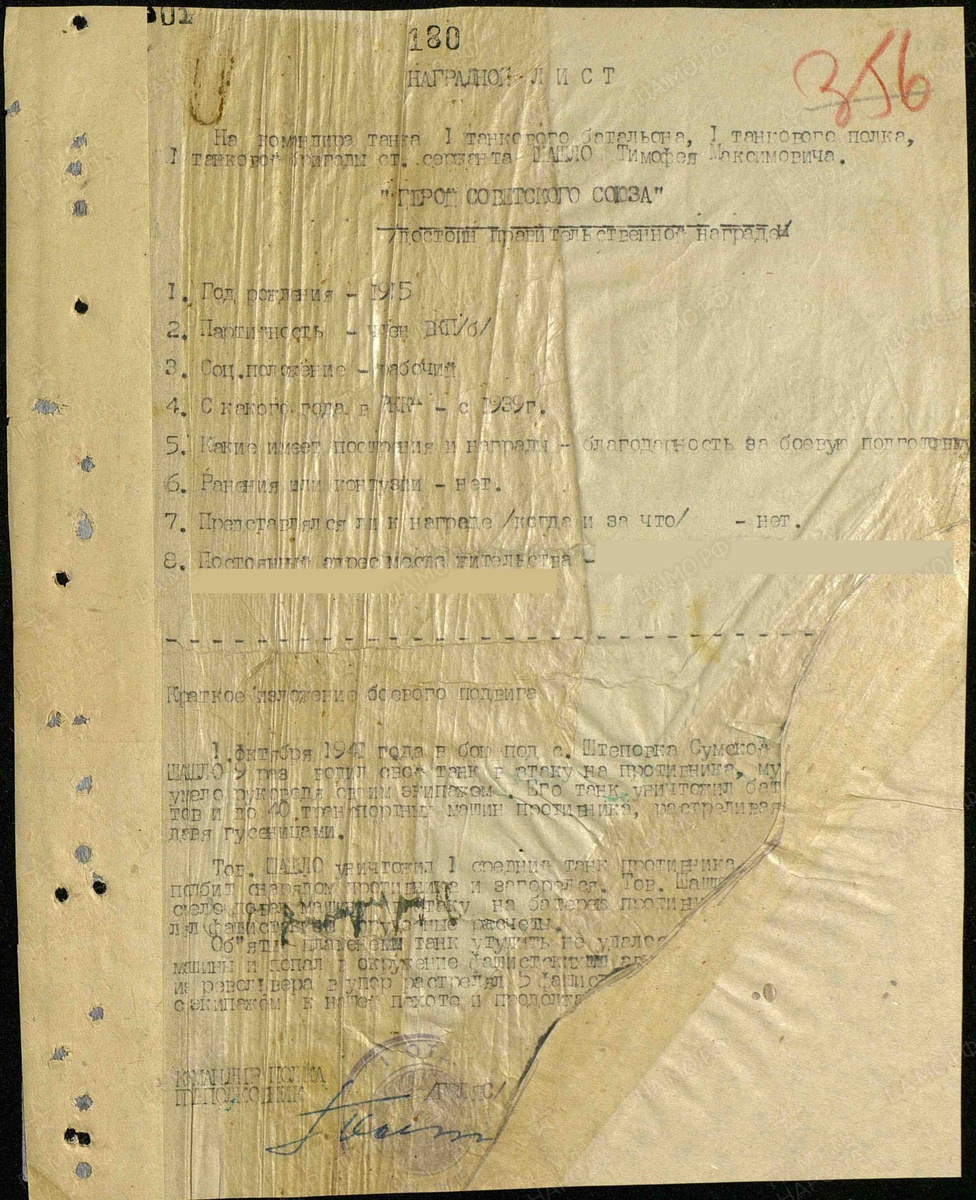 180
356
НАГРАДНОЙ ЛИСТ
На командира танка I танкового батальона, I танкового полка,
I танковой бригады ст. сержанта ШАШЛО Тимофея Максимовича.
"ГЕРОЙ СОВЕТСКОГО СОЮЗА"
/достоин правительственной награды/
1. Год рождения - 1915
2. Партийность - член ВКП/б/
3. Соц.положение - рабочий
4. С какого года в РККА - с 1939г.
5. Какие имеет поощрения и награды - благодарность за боевую
6. Ранения или контузии - нет.
7. Представлялся ли к награде /когда и за что/ - нет.
8. Постоянный адрес места жительства -
Краткое изложение боевого подвига
1 октября 1941 года в бою под с. Штеповка Сумской
ШАШЛО 9 раз водил свой танк в атаку на противника, му
умело руководя своим экипажем. Его танк уничтожил бат
тов и до 40 транспортных машин противника, расстреливая
давя гусеницами.
Тов. ШАШЛО уничтожил I средний танк противника.
подбит снарядом противника и загорелся. Тов. Шаш
атаку на батарею противни
орудийные расчеты.
Об"ятый пламенем танк утушить не удалос
машины и попал в окружение фашистскими
из револьвера в упор расстрелял 5 фашис
с экипажем к нашей пехоте и продолжа
КАМАНДИР ПОЛКА
ПОДПОЛКОВНИК